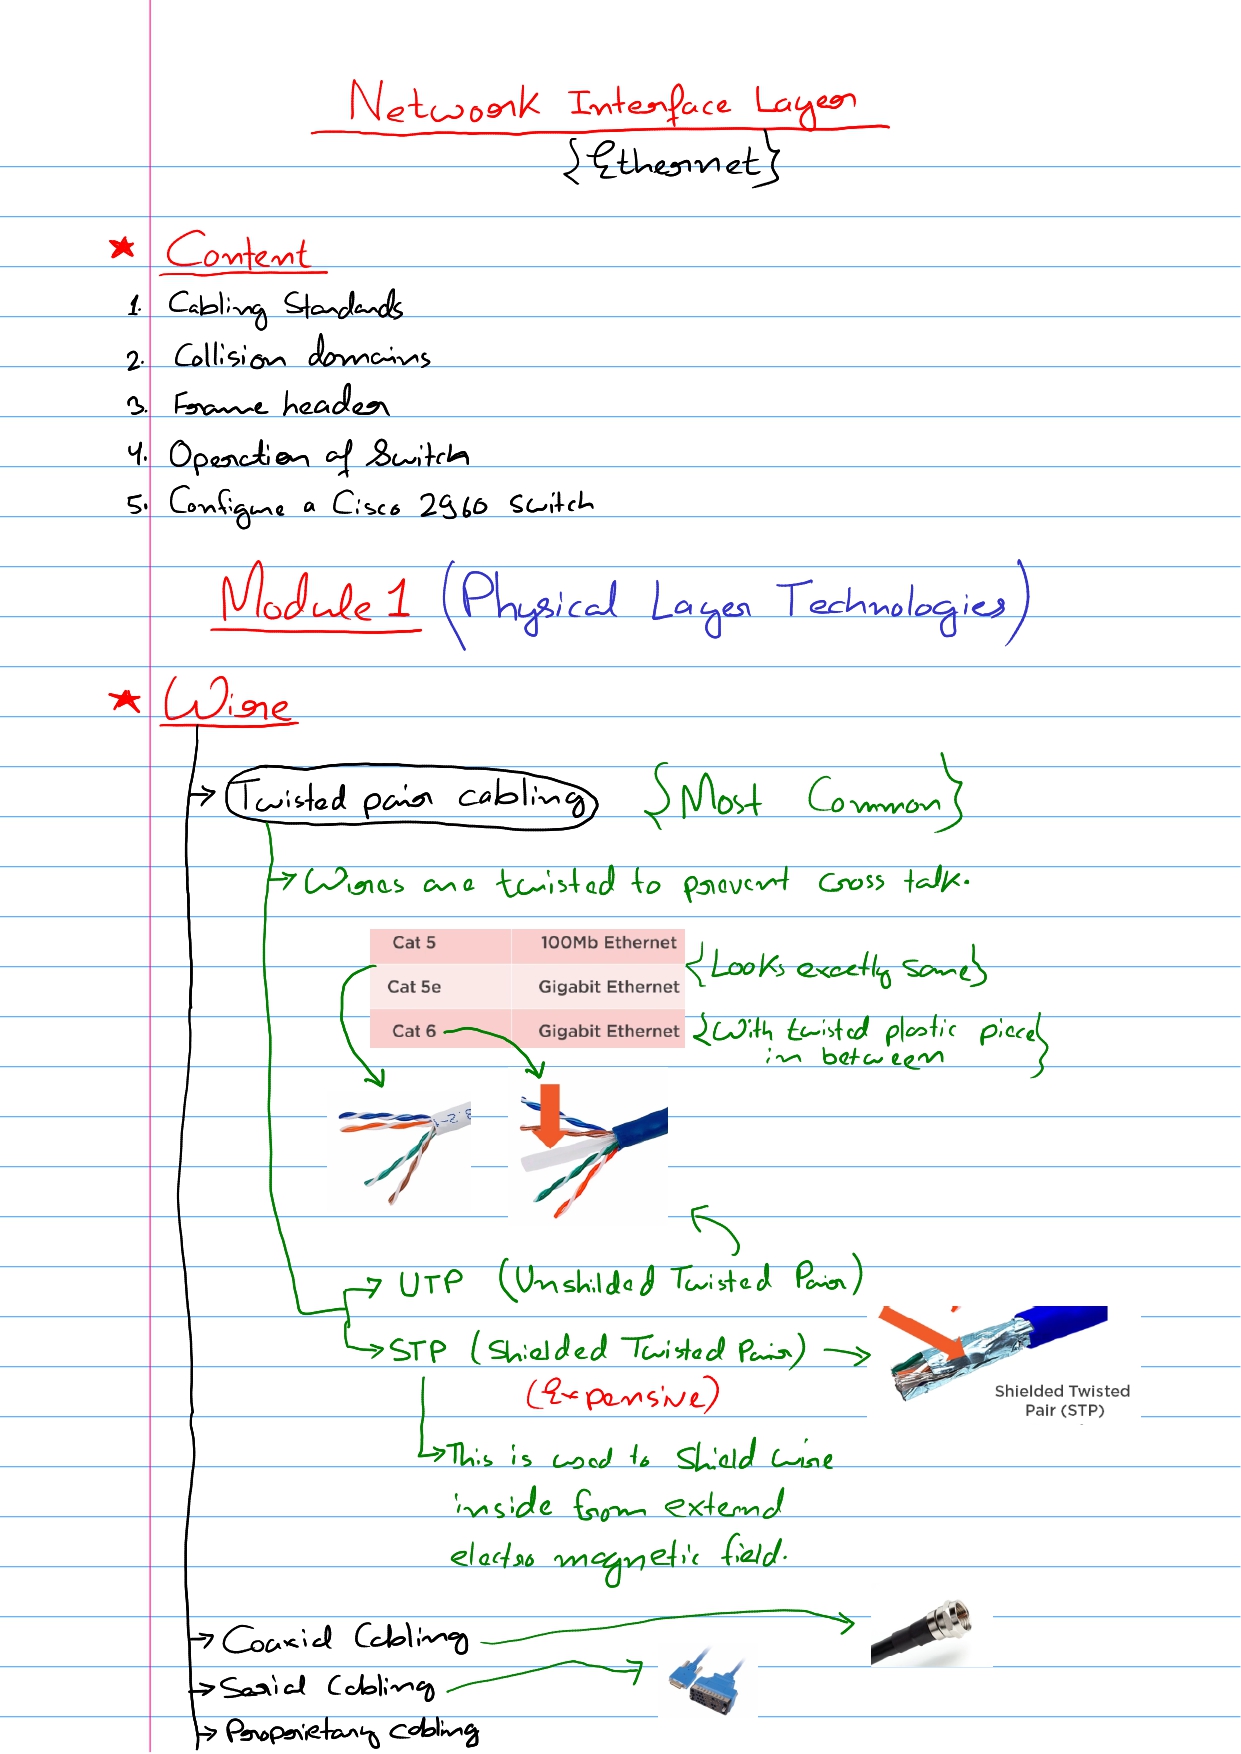 Network Interface Layer
{Ethernet}
★ Content
1. Cabling Standards
2. Collision domains
3. Frame header
4. Operation of Switch
5. Configure a Cisco 2960 switch
Module 1 (Physical Layer Technologies)
★ Wire
→ Twisted pair cabling {Most Common}
→ Wires are twisted to prevent cross talk.
Cat 5 100Mb Ethernet
{Looks exactly same}
Cat 5e Gigabit Ethernet
Cat 6 Gigabit Ethernet {With twisted plastic piece
in between}
→ UTP (Unshilded Twisted Pair)
→ STP (Shielded Twisted Pair) →
(Expensive)
Shielded Twisted
Pair (STP)
→ This is used to shield wire
inside from external
electro magnetic field.
→ Coaxial Cabling
→ Serial Cabling
→ Proprietary cabling